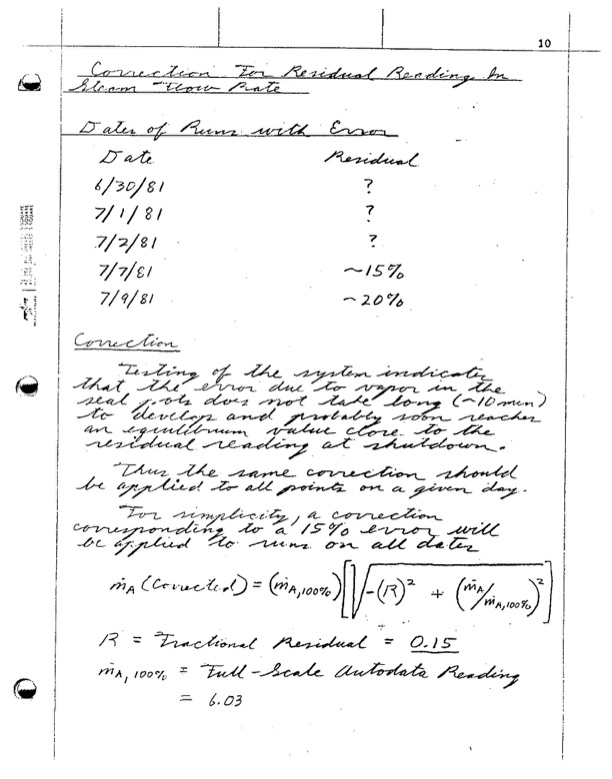 10
Correction For Residual Reading In
Steam Flow Rate
Dates of Runs with Error
Date Residual
6/30/81 ?
7/1/81 ?
7/2/81 ?
7/7/81 ~15%
7/9/81 ~20%
Correction
Testing of the system indicates
that the error due to vapor in the
seal pots does not take long (~10 min)
to develop and probably soon reaches
an equilibrium value close to the
residual reading at shutdown.
Thus the same correction should
be applied to all points on a given day.
For simplicity, a correction
corresponding to a 15% error will
be applied to runs on all dates
ṁA (Corrected) = (ṁA,100%) [√(-(R)² + (ṁA/ṁA,100%)²)]
R = Fractional Residual = 0.15
ṁA,100% = Full-Scale Autodata Reading
= 6.03